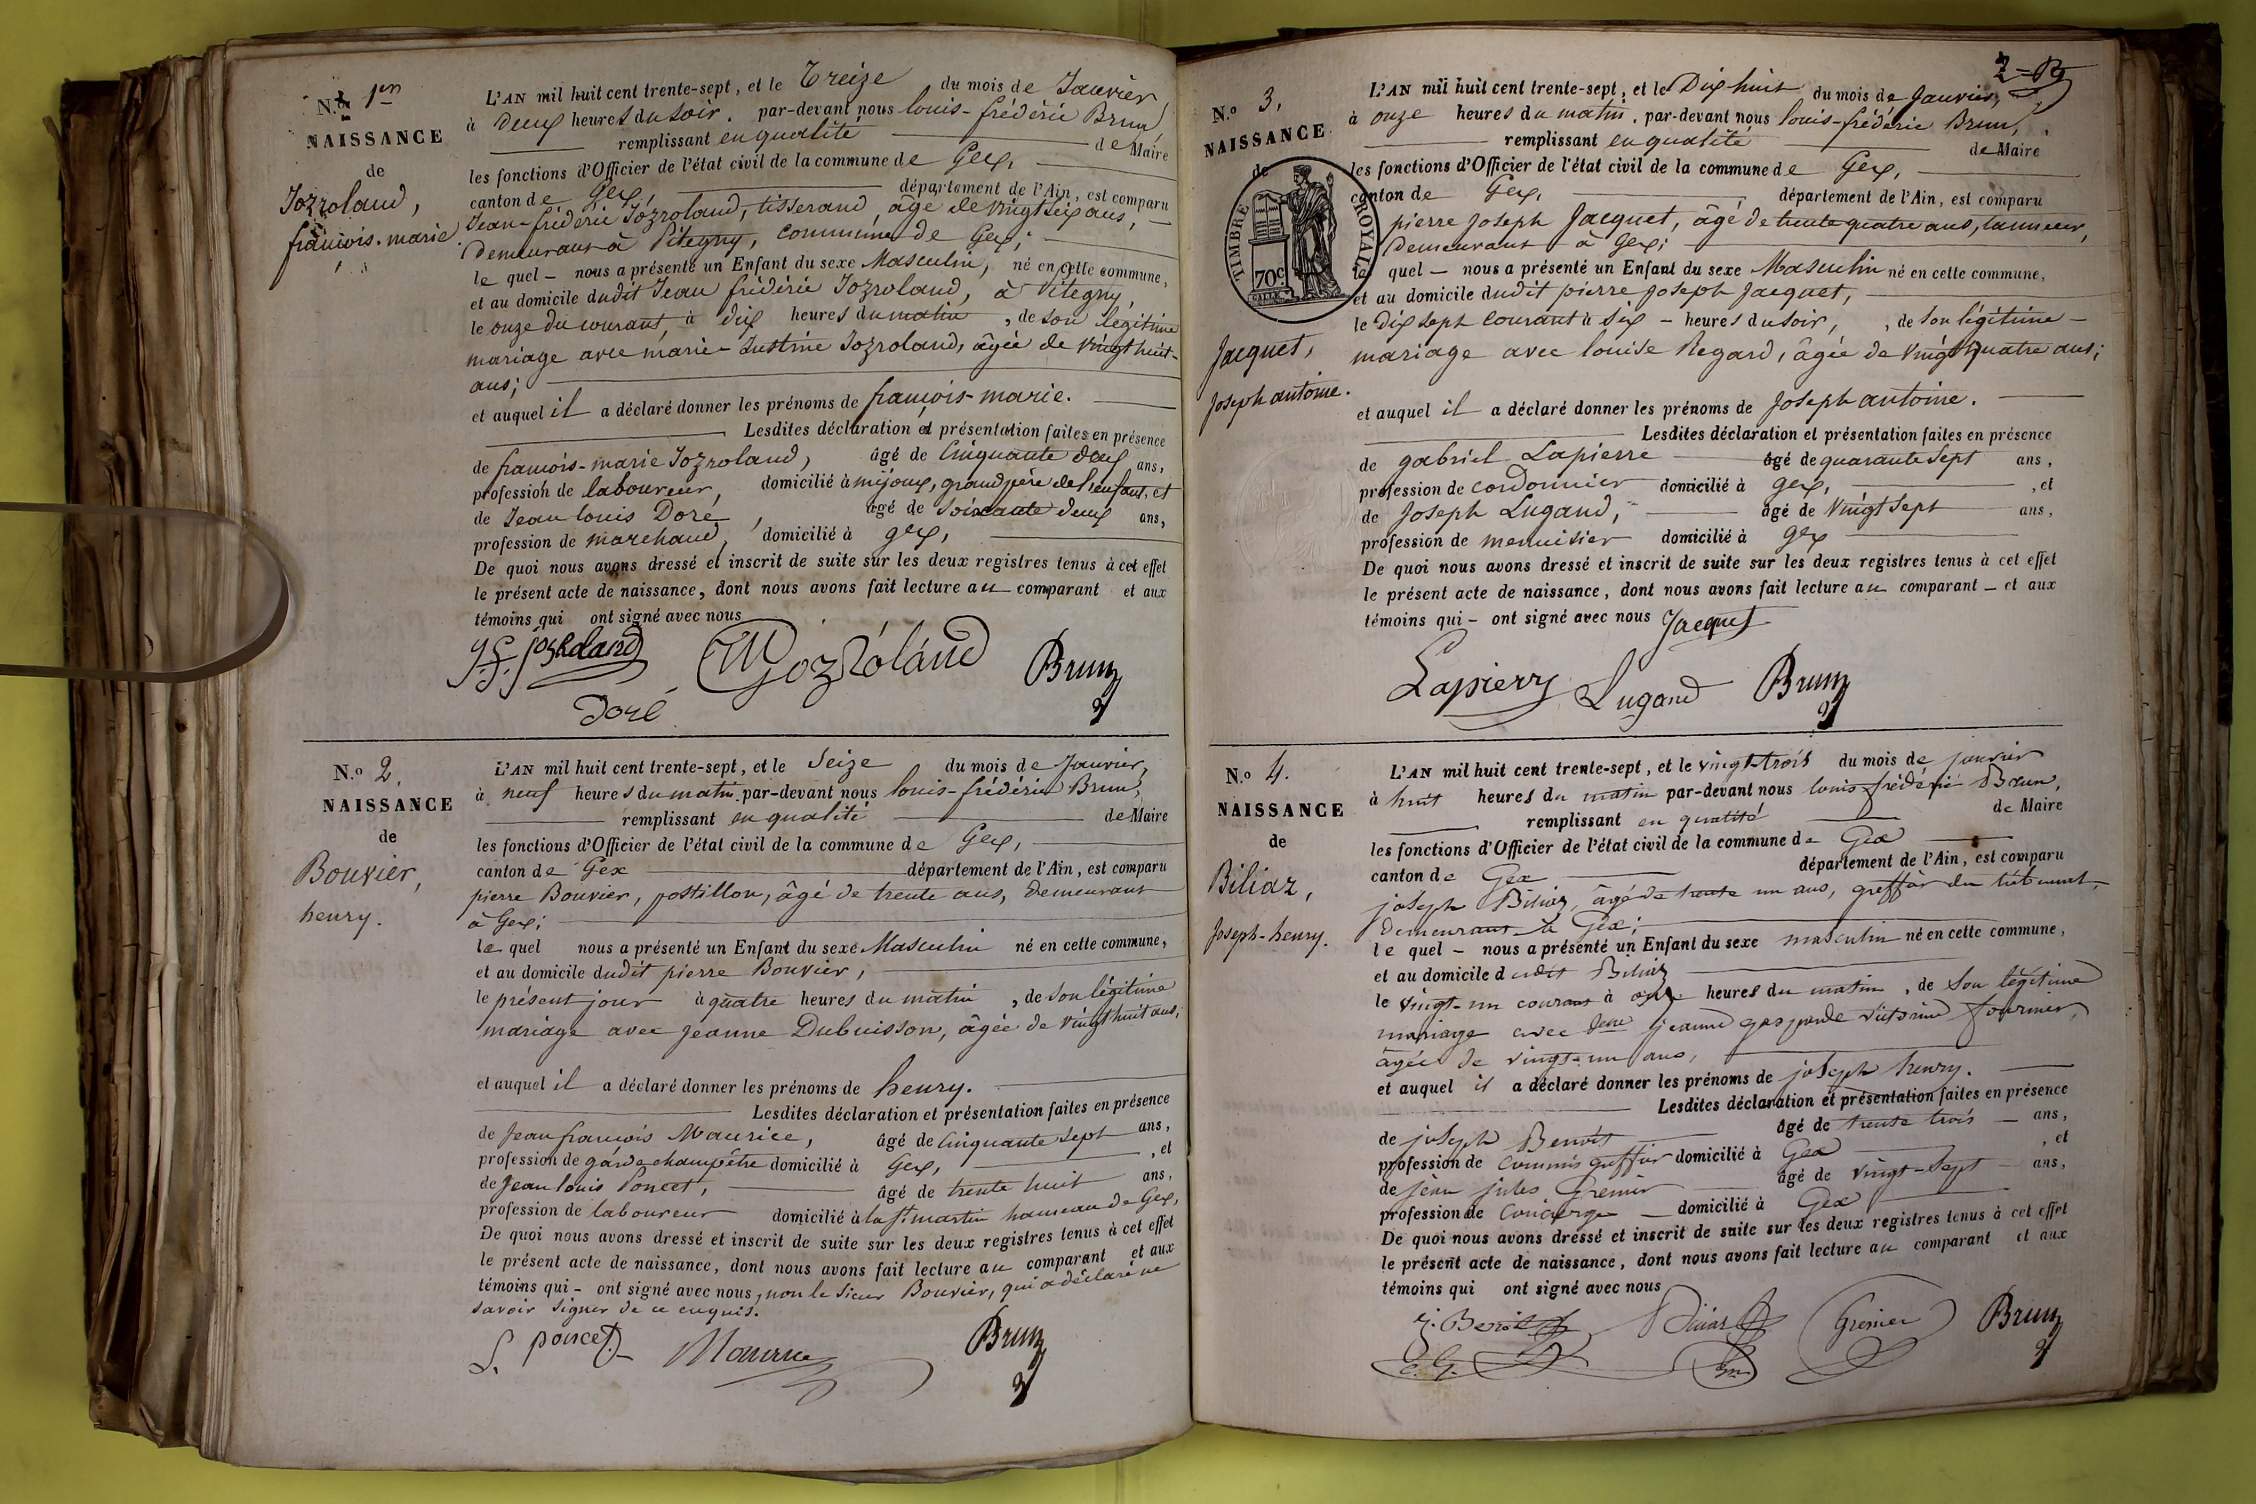 N.o 1er
NAISSANCE
de
Jozroland,
françois-marie.
L'AN mil huit cent trente-sept, et le treize du mois de Janvier,
à deux heures du soir. par-devant nous louis-frédéric Brun,
remplissant en qualité de Maire
les fonctions d'Officier de l'état civil de la commune de Gex,
canton de Gex, département de l'Ain, est comparu
Jean-frédéric Jozroland, tisserand, âgé de vingt six ans,
demeurant à Pitegny, commune de Gex;
le quel – nous a présenté un Enfant du sexe Masculin, né en cette commune,
et au domicile dudit Jean frédéric Jozroland, à Pitegny,
le onze du courant, à dix heures du matin, de son légitime
mariage avec marie-Justine Jozroland, âgée de vingt huit
ans;
et auquel il a déclaré donner les prénoms de françois-marie.
Lesdites déclaration et présentation faites en présence
de françois-marie Jozroland, âgé de Cinquante deux ans,
profession de laboureur, domicilié à mijoux, grand père de l'enfant, et
de Jean louis Doré, âgé de soixante deux ans,
profession de marchand, domicilié à gex,
De quoi nous avons dressé et inscrit de suite sur les deux registres tenus à cet effet
le présent acte de naissance, dont nous avons fait lecture au comparant et aux
témoins qui ont signé avec nous
J. f. jozroland Jozroland Brun
Doré
N.o 2.
NAISSANCE
de
Bouvier,
henry.
L'AN mil huit cent trente-sept, et le Seize du mois de Janvier,
à neuf heures du matin. par-devant nous louis-frédéric Brun,
remplissant en qualité de Maire
les fonctions d'Officier de l'état civil de la commune de Gex,
canton de Gex département de l'Ain, est comparu
pierre Bouvier, postillon, âgé de trente ans, demeurant
à Gex;
le quel nous a présenté un Enfant du sexe Masculin né en cette commune,
et au domicile dudit pierre Bouvier,
le présent jour à quatre heures du matin, de son légitime
mariage avec jeanne Dubuisson, âgée de vingt huit ans;
et auquel il a déclaré donner les prénoms de henry.
Lesdites déclaration et présentation faites en présence
de Jean françois Maurice, âgé de Cinquante Sept ans,
profession de gardechampêtre domicilié à Gex, , et
de Jean louis Poncet, âgé de trente huit ans,
profession de laboureur domicilié à la st. martin hameau de Gex,
De quoi nous avons dressé et inscrit de suite sur les deux registres tenus à cet effet
le présent acte de naissance, dont nous avons fait lecture au comparant et aux
témoins qui – ont signé avec nous, non le sieur Bouvier, qui a déclaré ne
savoir signer de ce enquis.
L. poncet Maurice Brun
2
N.o 3,
NAISSANCE
de
TIMBRE ROYAL
70c
Jacquet,
Joseph antoine.
L'AN mil huit cent trente-sept, et le Dix huit du mois de Janvier,
à onze heures du matin, par-devant nous louis-frédéric Brun,
remplissant en qualité de Maire
les fonctions d'Officier de l'état civil de la commune de Gex,
canton de Gex, département de l'Ain, est comparu
pierre Joseph Jacquet, âgé de trente quatre ans, tanneur,
demeurant à Gex;
le quel – nous a présenté un Enfant du sexe Masculin né en cette commune,
et au domicile dudit pierre Joseph Jacquet,
le dix sept courant à six – heures du soir, , de son légitime
mariage avec louise Regard, âgée de vingt quatre ans;
et auquel il a déclaré donner les prénoms de Joseph antoine.
Lesdites déclaration et présentation faites en présence
de gabriel Lapierre âgé de quarante Sept ans,
profession de cordonnier domicilié à gex, , et
de Joseph Lugand, âgé de vingt sept ans,
profession de menuisier domicilié à gex
De quoi nous avons dressé et inscrit de suite sur les deux registres tenus à cet effet
le présent acte de naissance, dont nous avons fait lecture au comparant – et aux
témoins qui – ont signé avec nous Jacquet
Lapierre Lugand Brun
N.o 4.
NAISSANCE
de
Biliaz,
Joseph-henry.
L'AN mil huit cent trente-sept, et le vingt-trois du mois de janvier
à huit heures du matin par-devant nous louis-frédéric Brun,
remplissant en qualité de Maire
les fonctions d'Officier de l'état civil de la commune de Gex
canton de Gex département de l'Ain, est comparu
joseph Biliaz, âgé de trente un ans, greffier du tribunal,
demeurant à Gex;
le quel – nous a présenté un Enfant du sexe masculin né en cette commune,
et au domicile dudit Biliaz
le vingt-un courant à onze heures du matin, de son légitime
mariage avec Dame jeanne gasparde victorine fournier,
âgée de vingt-un ans,
et auquel il a déclaré donner les prénoms de joseph henry.
Lesdites déclaration et présentation faites en présence
de joseph Benoit âgé de trente trois – ans,
profession de commis greffier domicilié à Gex , et
de jean jules Grenier âgé de vingt-sept ans,
profession de concierge – domicilié à Gex
De quoi nous avons dressé et inscrit de suite sur les deux registres tenus à cet effet
le présent acte de naissance, dont nous avons fait lecture au comparant et aux
témoins qui ont signé avec nous
j. Benoit Biliaz Grenier Brun